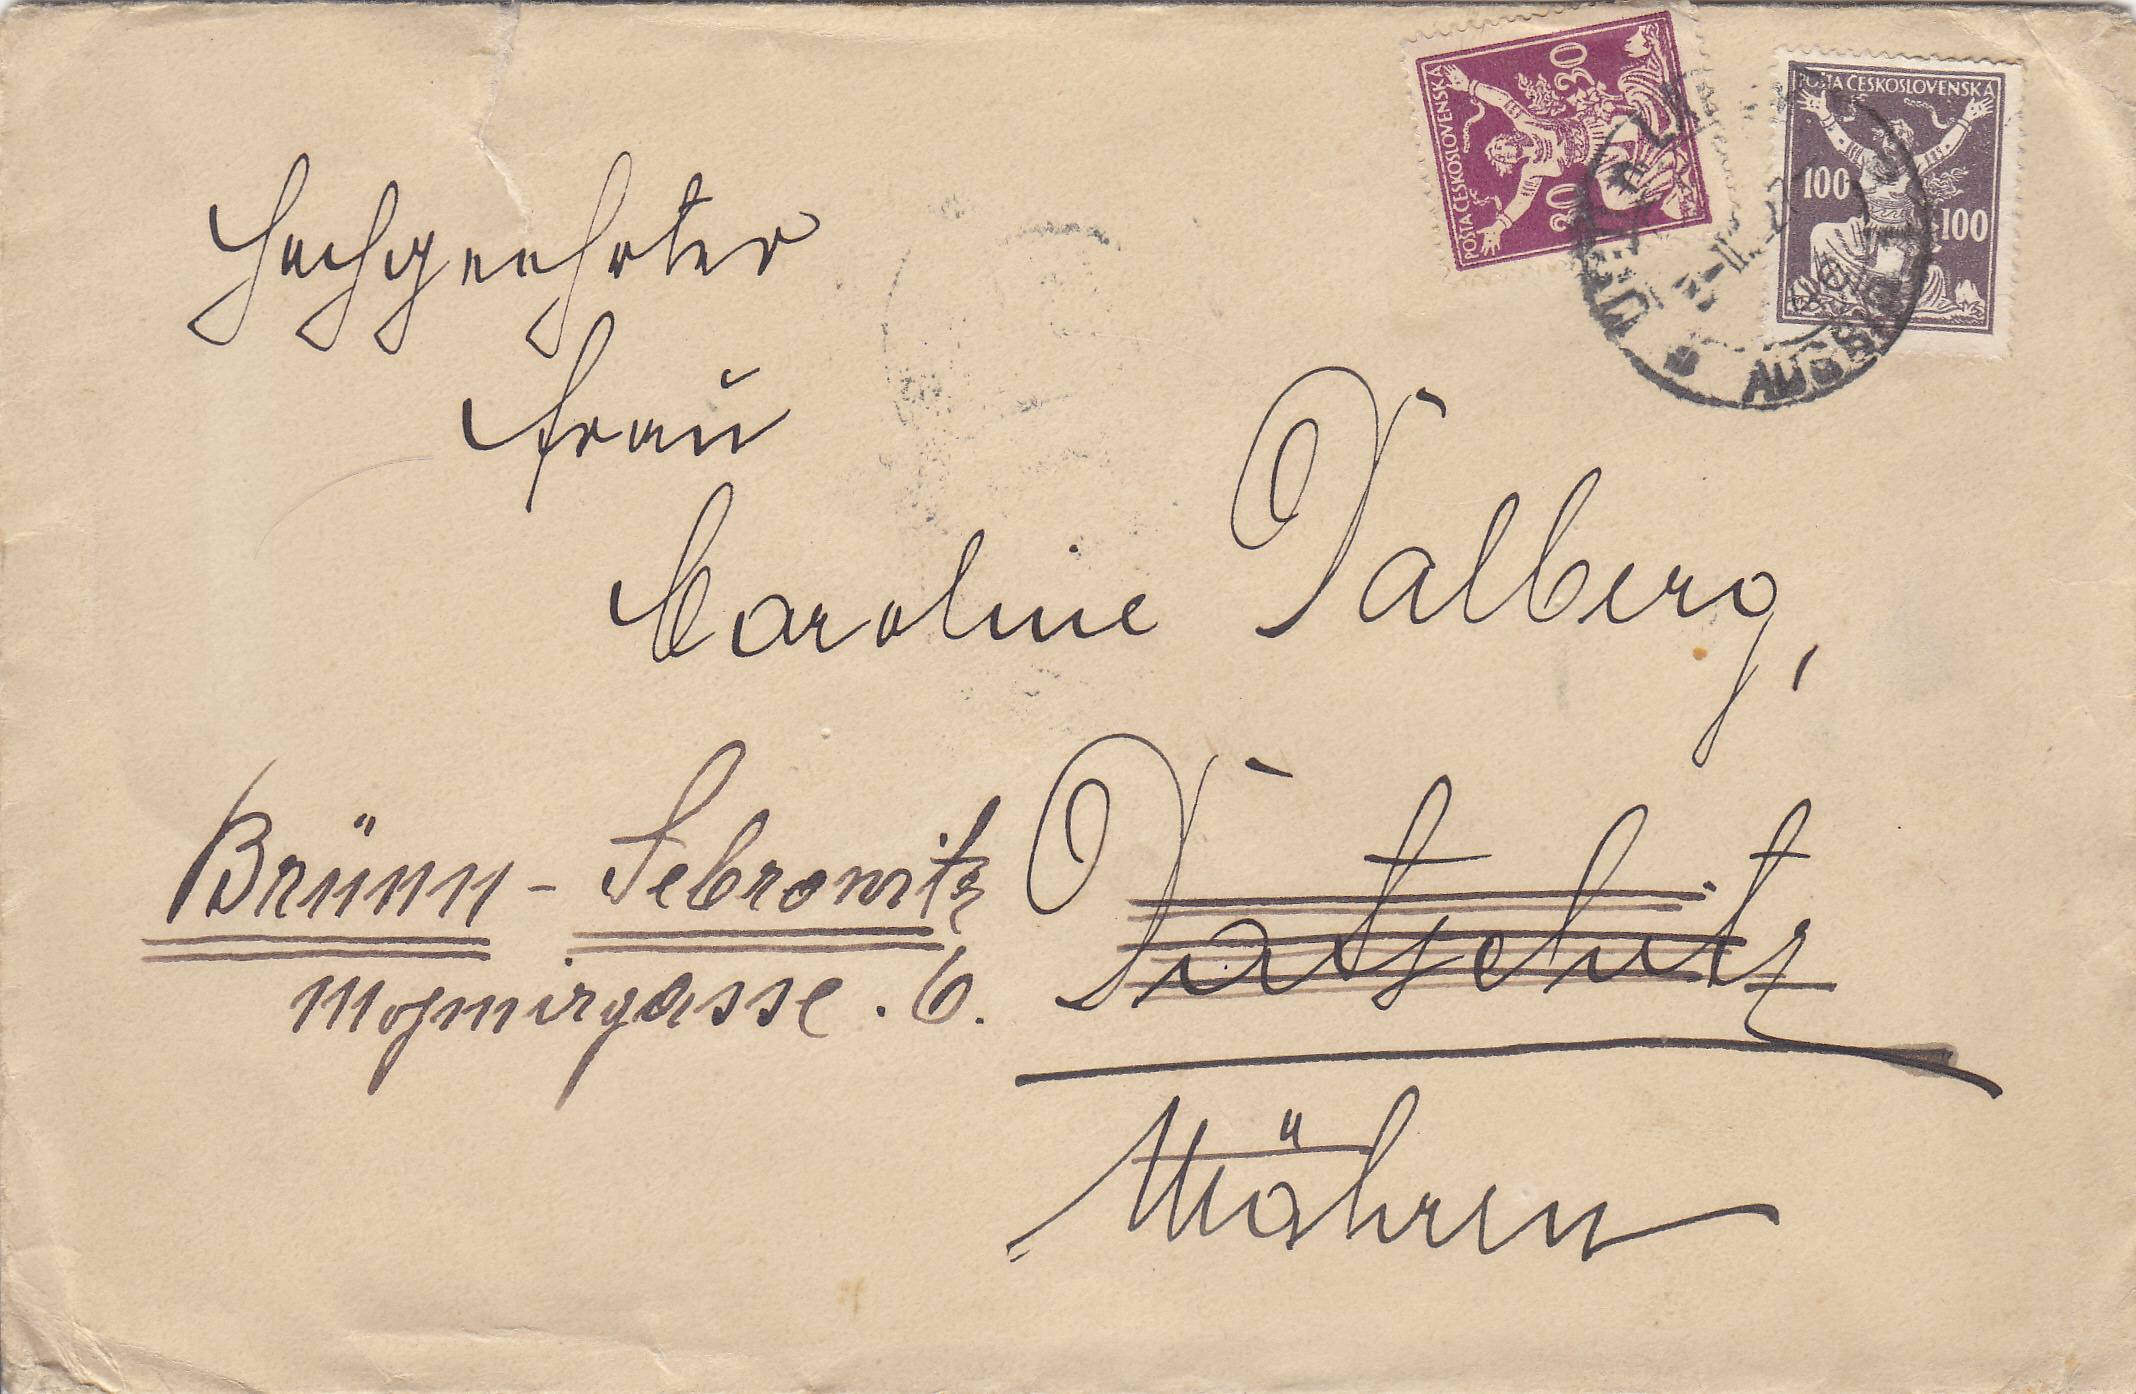 POŠTA ČESKOSLOVENSKÁ
30 30
POŠTA ČESKOSLOVENSKÁ
100
100
AUSSIG
Hochgeehrter
Frau
Caroline Dalberg,
Brünn - Sebrowitz
Mojmirgasse . 6.
Datschitz
Mähren